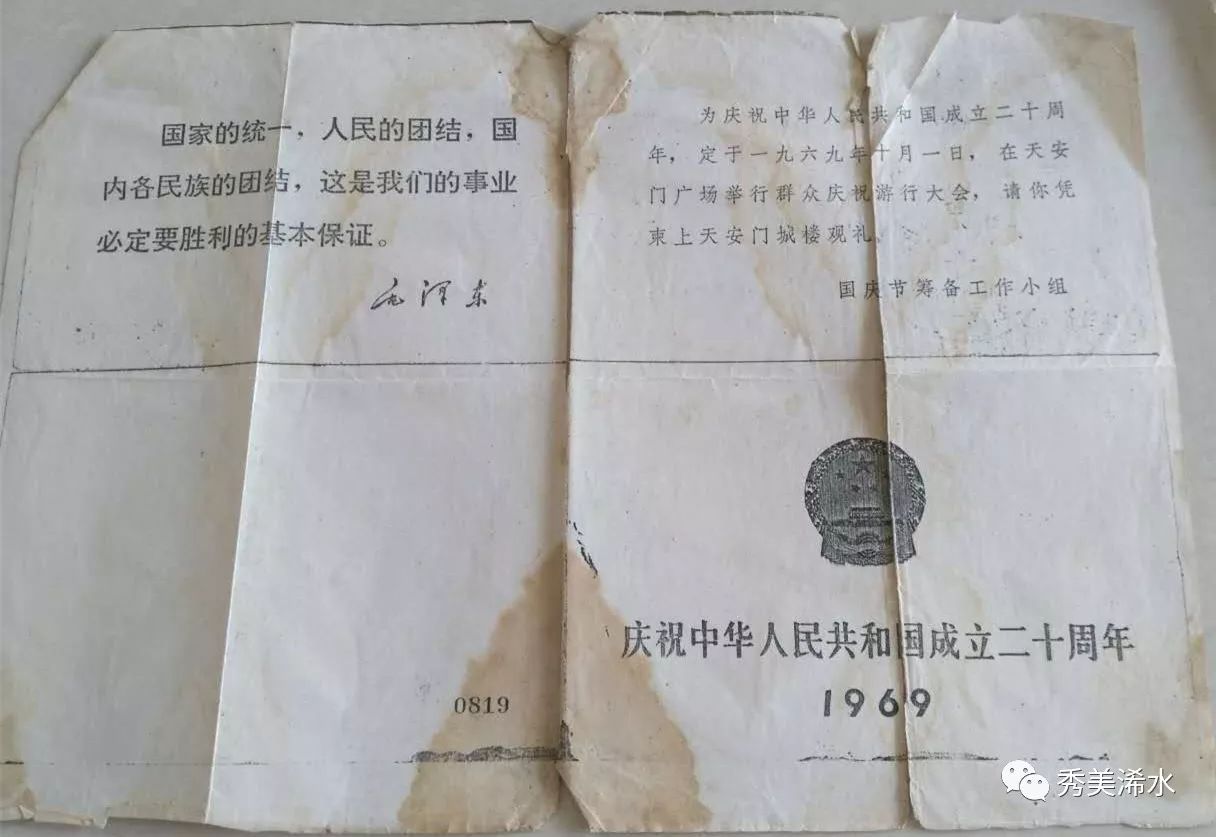 国家的统一，人民的团结，国
内各民族的团结，这是我们的事业
必定要胜利的基本保证。
毛泽东
为庆祝中华人民共和国成立二十周
年，定于一九六九年十月一日，在天安
门广场举行群众庆祝游行大会，请你凭
柬上天安门城楼观礼。
国庆节筹备工作小组
0819
庆祝中华人民共和国成立二十周年
1969
秀美浠水